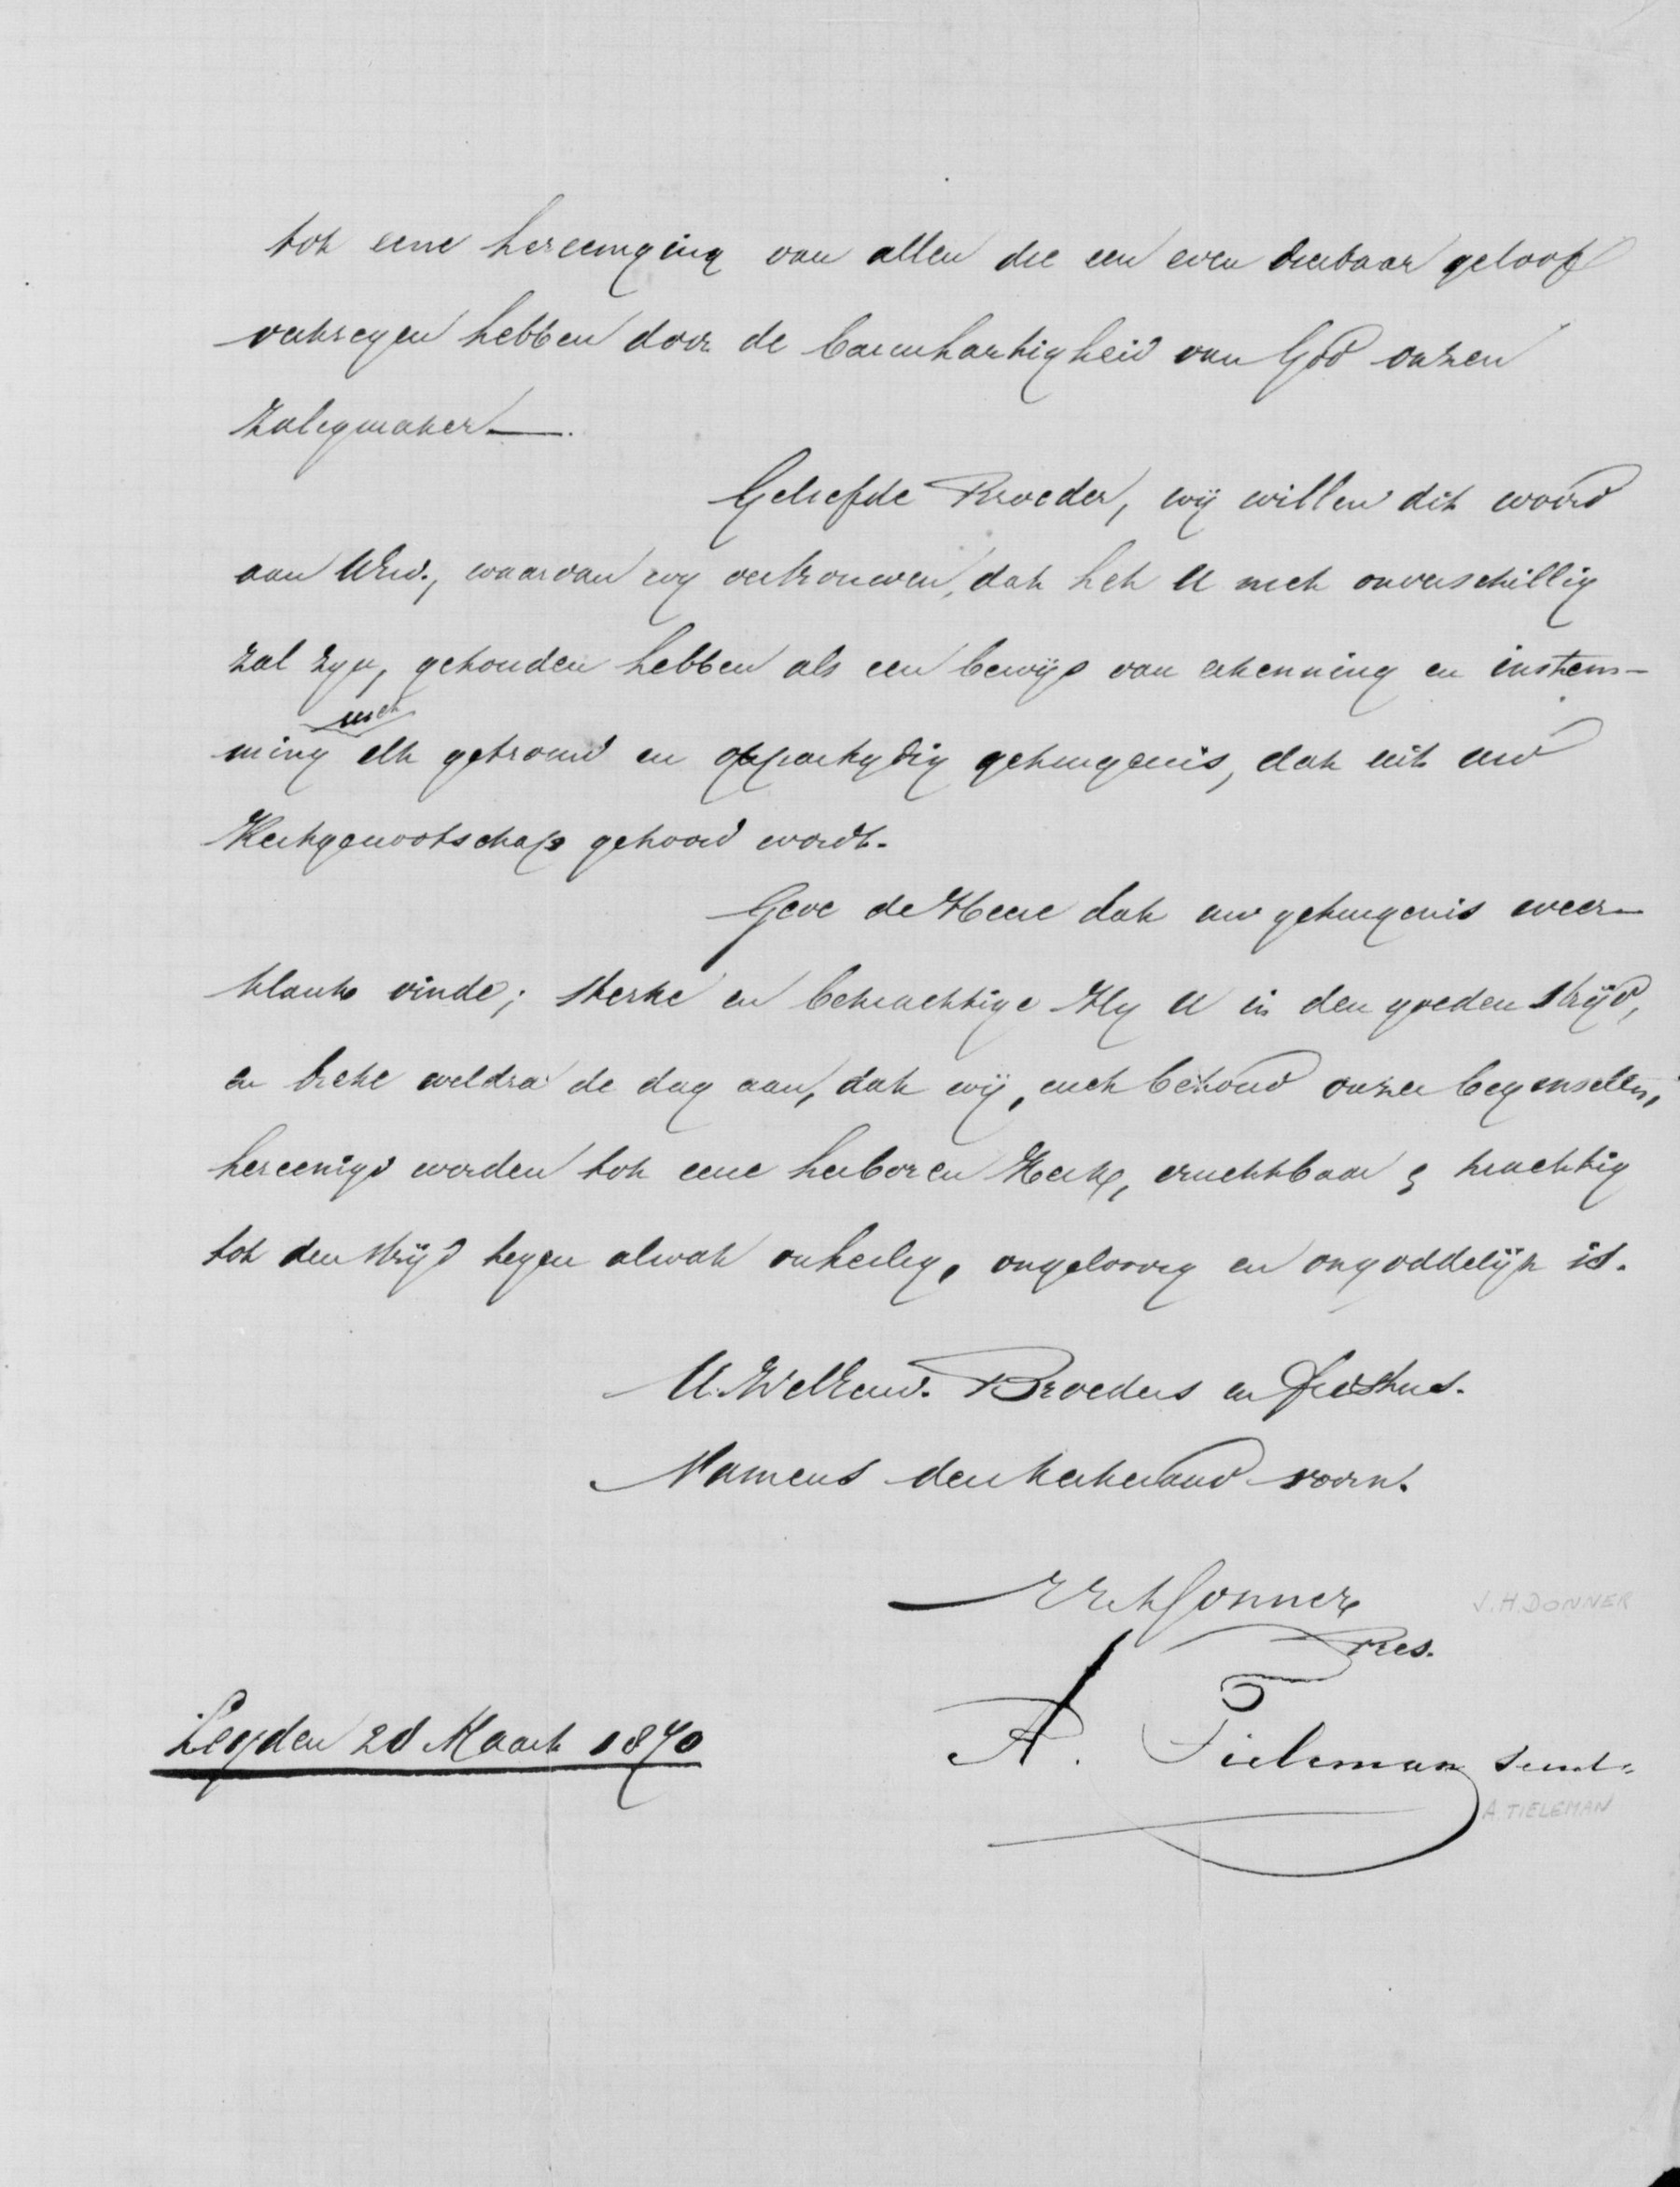 tot eene hereeniging van allen die een even dierbaar geloof
verkregen hebben door de barmhartigheid van God onzen
Zaligmaker —.
Geliefde Broeder, wij willen dit woord
aan UEw., waarvan wy vertrouwen, dat het U niet onverschillig
zal zyn, gehouden hebben als een bewijs van erkenning en instem-
met
ming elk getrouw en onpartydig getuigenis, dat uit uw
Kerkgenootschap gehoord wordt.
Geve de Heere dat uw getuigenis weer-
klank vinde; sterke en bekrachtige Hy U in den goeden strijd,
en breke weldra de dag aan, dat wij, met behoud onzer beginselen,
hereenigd worden tot eene herboren Kerk, vruchtbaar & krachtig
tot den strijd tegen alwat onheilig, ongeloovig en ongoddelijk is.
U.WelEerw. Broeders en
Namens den kerkeraad voorn.
JH Donner
J.H. DONNER
Pres.
Leyden 20 Maart 1870
A. Tieleman
A. TIELEMAN